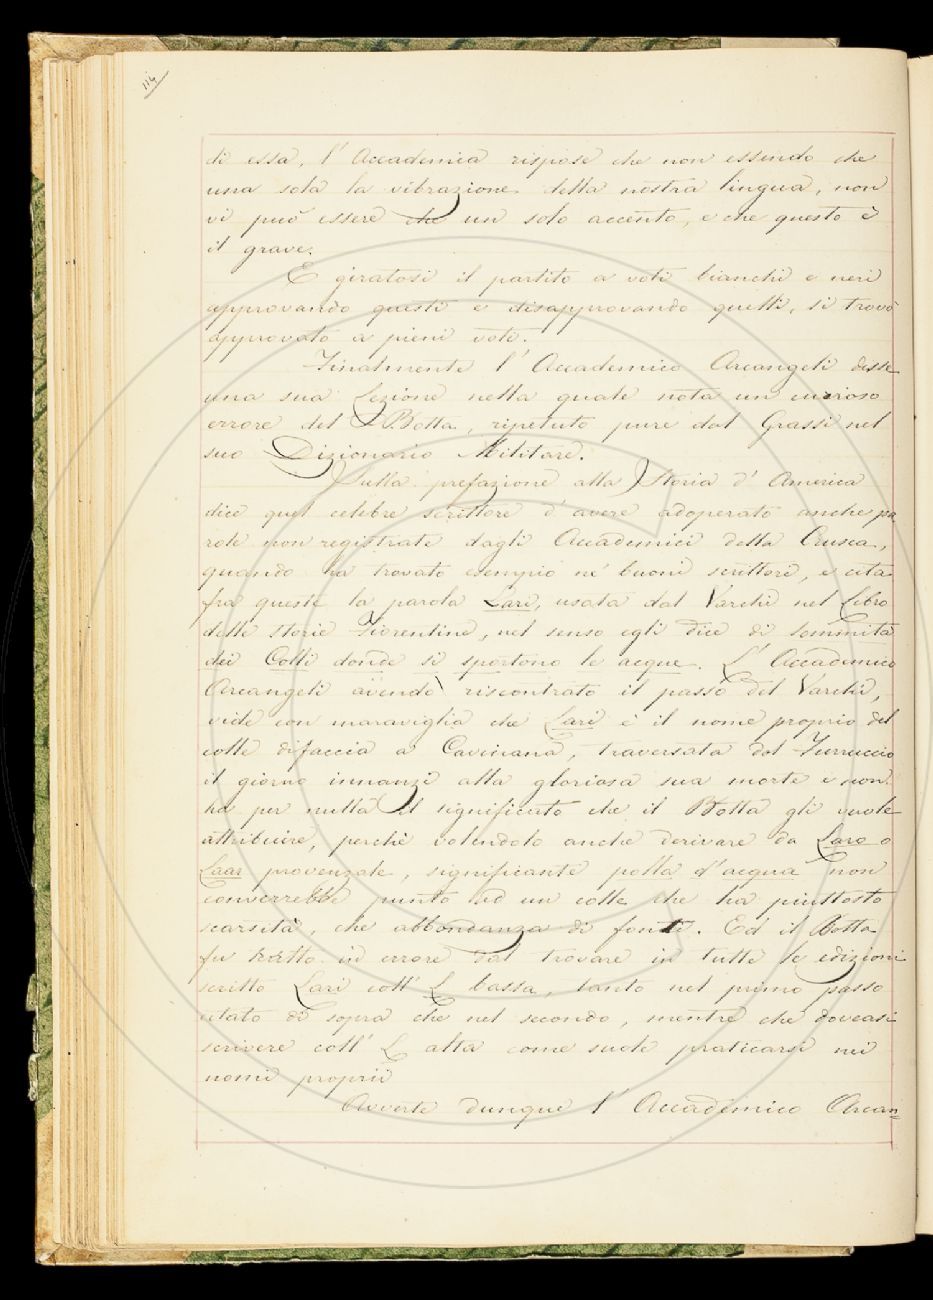 114
di essa, l' Accademia rispose che non essendo che
una sola la vibrazione della nostra lingua, non
vi può essere che un solo accento, e che questo è
il grave.
E giratosi il partito a voti bianchi e neri
approvando questi e disapprovando quelli, si trovò
approvato a pieni voti.
Finalmente l' Accademico Arcangeli disse
una sua Lezione nella quale nota un curioso
errore del Botta, ripetuto pure dal Grassi nel
suo Dizionario Militare.
Sulla prefazione alla Storia d' America
dice quel celebre scrittore d' avere adoperato anche pa
role non registrate dagli Accademici della Crusca,
quando ha trovato esempio ne' buoni scrittori, e cita
fra queste la parola Lari, usata dal Varchi nel Libro
delle storie Fiorentine, nel senso egli dice di sommità
dei Colli donde si spartono le acque. L' Accademico
Arcangeli avendo riscontrato il passo del Varchi,
vide con maraviglia che Lari è il nome proprio del
colle difaccia a Cavinana, traversata dal Ferruccio
il giorno innanzi alla gloriosa sua morte e non
ha per nulla il significato che il Botta gli vuole
attribuire, perchè volendolo anche derivare da Lare o
Laar provenzale, significante polla d'acqua non
converrebbe punto ad un colle che ha piuttosto
scarsità, che abbondanza di fonti. Ed il Botta
fu tratto in errore dal trovare in tutte le edizioni
scritto Lari coll' L bassa, tanto nel primo passo
citato di sopra che nel secondo, mentre che doveasi
scrivere coll' L alta come suole praticarsi nei
nomi proprii
Avverte dunque l' Accademico Arcan=